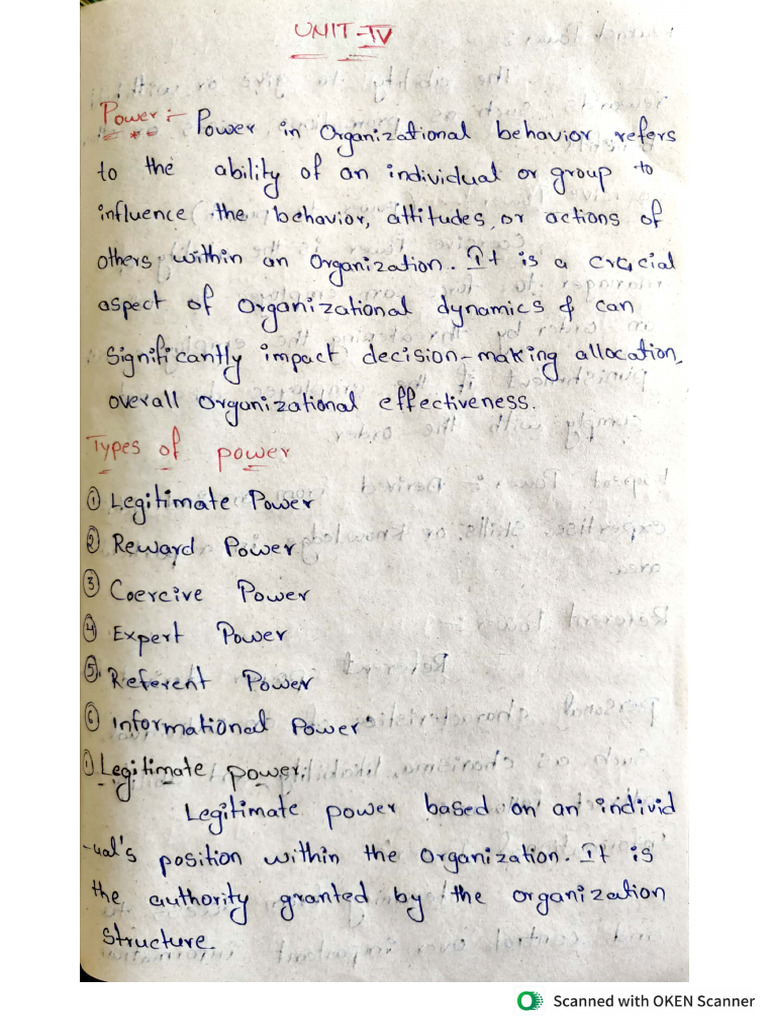 UNIT-IV
Power :- Power in Organizational behavior refers
to the ability of an individual or group to
influence the behavior, attitudes, or actions of
others within an Organization. It is a crucial
aspect of Organizational dynamics & can
Significantly impact decision-making allocation,
overall Organizational effectiveness.
Types of power
① Legitimate Power
② Reward Power
③ Coercive Power
④ Expert Power
⑤ Referent Power
⑥ Informational Power
① Legitimate power.
Legitimate power based on an individ
-ual's position within the Organization. It is
the authority granted by the organization
Structure.
Scanned with OKEN Scanner